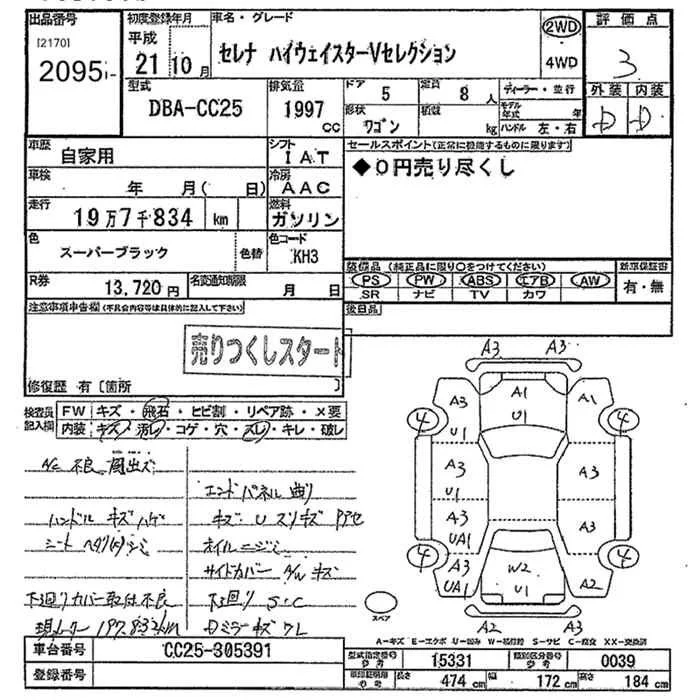 出品番号 初度登録年月 車名・グレード 評価点
[2170] 2095 平成 21年 10月 セレナ ハイウェイスターVセレクション 2WD 4WD 3
型式 DBA-CC25 排気量 1997 cc ドア 5 定員 8人 ディーラー・並行 外装 内装
形状 ワゴン 積載 kg モデル年式 年 ハンドル 左・右 D D
車歴 自家用 シフト IAT セールスポイント(正常に機能するものに限ります)
車検 年 月( 日) 冷房 AAC ◆0円売り尽くし
走行 19万7千834 km 燃料 ガソリン
色 スーパーブラック 色替 色コード KH3
R券 13,720円 名変通知期限 月 日
装備品 (純正品に限り○をつけてください) 新車保証書
PS PW ABS エアB AW 有・無
SR ナビ TV カワ
注意事項申告欄(不具合内容等は具体的に記入して下さい) 後日品
売りつくしスタート
修復歴 有〔箇所 〕
検査員記入欄 FW キズ・飛石・ヒビ割・リペア跡・×要
内装 キズ・汚レ・コゲ・穴・スレ・キレ・破レ
A/C 不良
エンドパネル 曲り
ハンドル キズ ハゲ
キズ U スリキズ
シート
オイルニジミ
サイドカバー A/W キズ
下廻りカバー取付不良 下廻り S・C
現メーター 197,833km Dミラーキズワレ
A3 A3
A3 A1 A1
U1 U1
4 4
A3 U1
A3 A3
UA1
4 4
A3 W2 A2
UA1 U1
A2 A3
スペア
A-キズ E-エクボ U-凹み W-補修跡 S-サビ C-腐食 XX-交換済
車台番号 CC25-305391
登録番号
型式指定番号 参考 15331 類別区分番号 参考 0039
車両証明用 参考 長さ 474 cm 幅 172 cm 高さ 184 cm